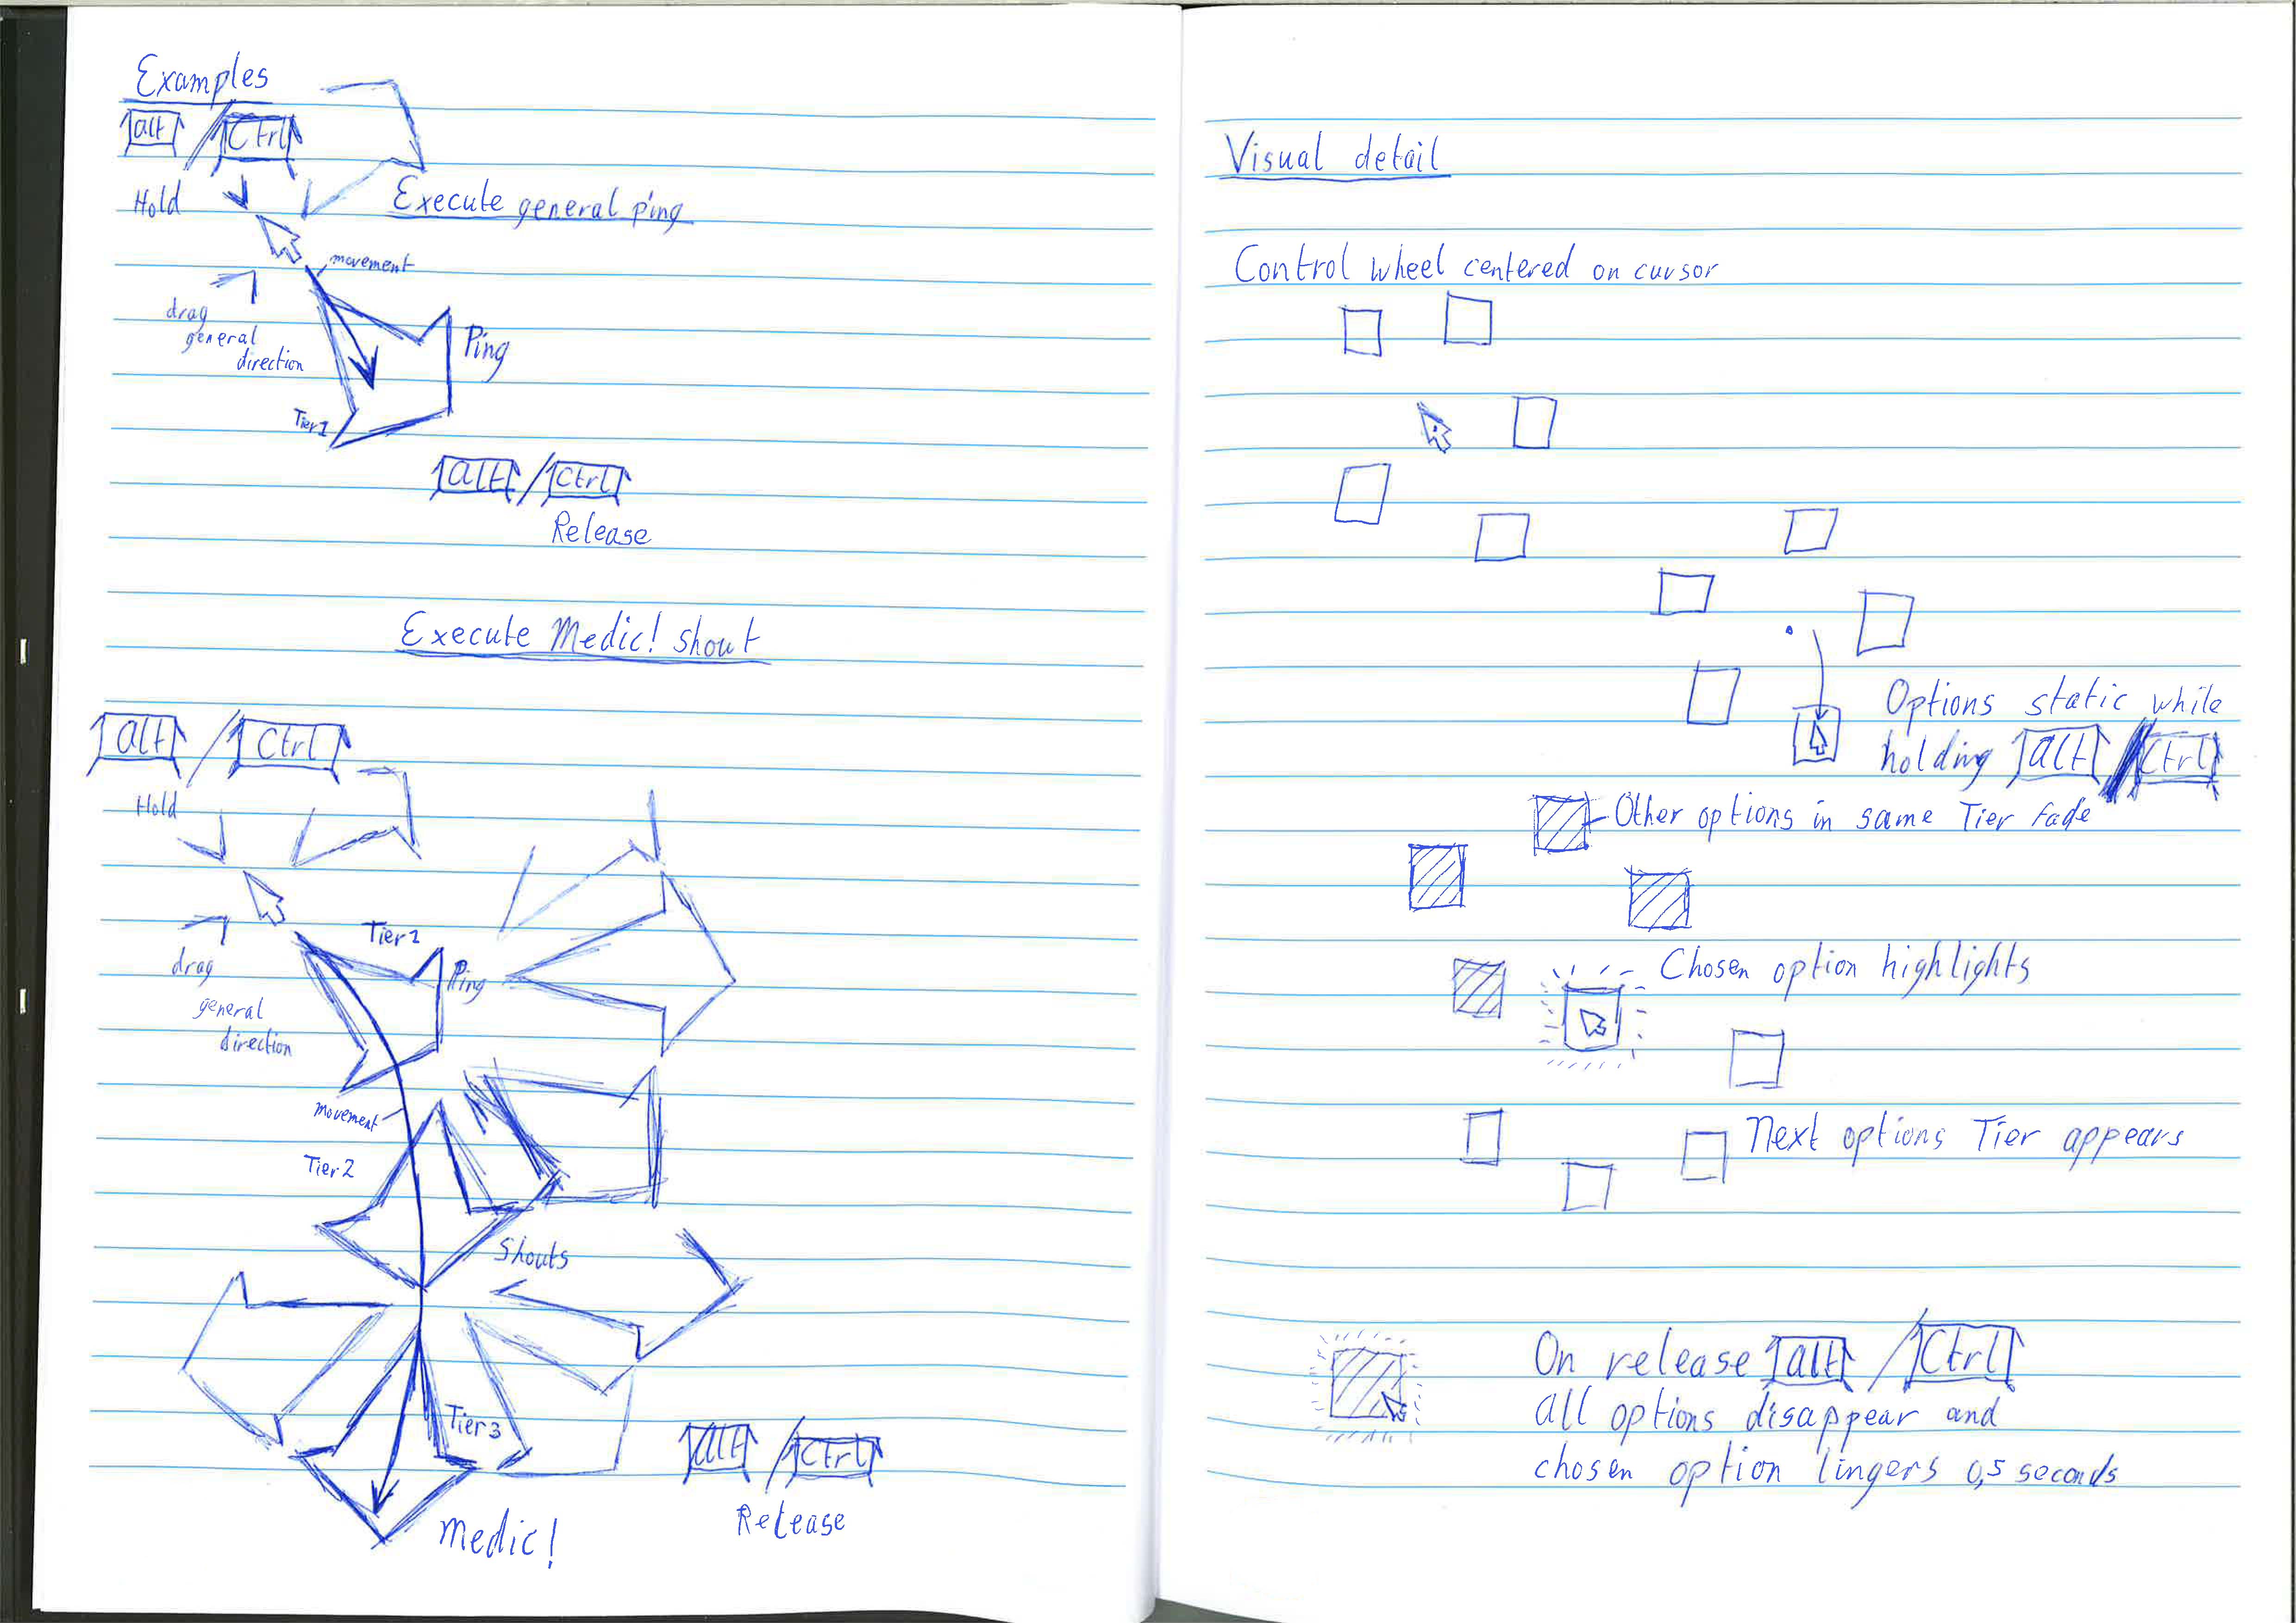 Examples
alt / Ctrl
Hold
Execute general ping
movement
drag
general
direction
Ping
Tier 1
alt / Ctrl
Release
Execute Medic! shout
alt / Ctrl
Hold
Tier 1
drag
Ping
general
direction
movement
Tier 2
Shouts
Tier 3
alt / Ctrl
Release
Medic!
Visual detail
Control wheel centered on cursor
Options static while
holding alt / Ctrl
Other options in same Tier fade
Chosen option highlights
Next options Tier appears
On release alt / Ctrl
all options disappear and
chosen option lingers 0,5 seconds